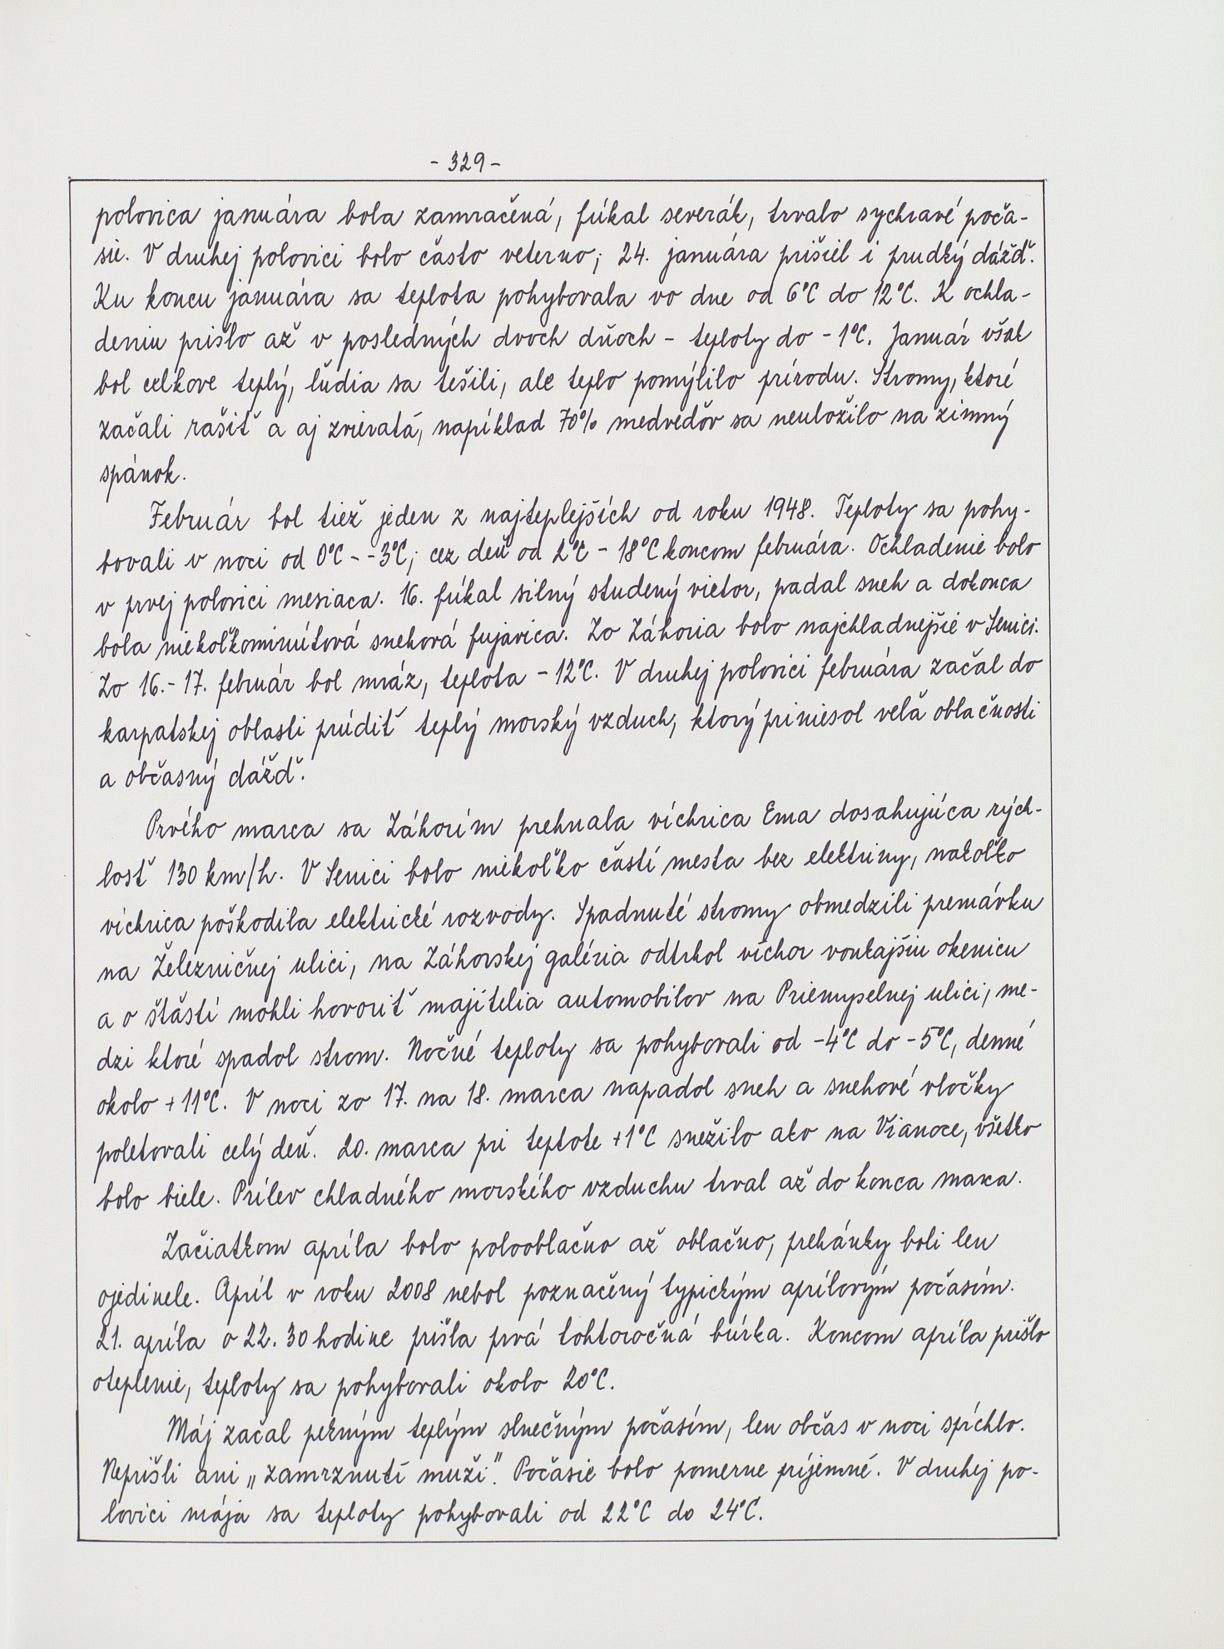 - 329 -
polovica januára bola zamračená, fúkal severák, trvalo sychravé poča-
sie. V druhej polovici bolo často veterno, 24. januára prišiel i prudký dážď.
Ku koncu januára sa teplota pohybovala vo dne od 6°C do 12°C. K ochla-
deniu prišlo až v posledných dvoch dňoch - teploty do -1°C. Január však
bol celkove teplý, ľudia sa tešili, ale teplo pomýlilo prírodu. Stromy, ktoré
začali rašiť a aj zvieratá, napíklad 70% medveďov sa neuložilo na zimný
spánok.
Február bol tiež jeden z najteplejších od roku 1948. Teploty sa pohy-
bovali v noci od 0°C - -3°C, cez deň od 2°C - 18°C koncom februára. Ochladenie bolo
v prvej polovici mesiaca. 16. fúkal silný studený vietor, padal sneh a dokonca
bola niekoľkominútová snehová fujavica. Zo Záhoria bolo najchladnejšie v Senici.
Zo 16.-17. február bol mráz, teplota -12°C. V druhej polovici februára začal do
karpatskej oblasti prúdiť teplý morský vzduch, ktorý priniesol veľa oblačnosti
a občasný dážď.
Prvého marca sa Záhorím prehnala víchrica Ema dosahujúca rých-
losť 130 km/h. V Senici bolo niekoľko častí mesta bez elektriny, nakoľko
víchrica poškodila elektrické rozvody. Spadnuté stromy obmedzili premávku
na Železničnej ulici, na Záhorskej galéria odtrhol víchor vonkajšiu okenicu
a o šťastí mohli hovoriť majitelia automobilov na Priemyselnej ulici, me-
dzi ktoré spadol strom. Nočné teploty sa pohybovali od -4°C do -5°C, denné
okolo +11°C. V noci zo 17. na 18. marca napadol sneh a snehové vločky
poletovali celý deň. 20. marca pri teplote +1°C snežilo ako na Vianoce, všetko
bolo biele. Prílev chladného morského vzduchu trval až do konca marca.
Začiatkom apríla bolo polooblačno až oblačno, prehánky boli len
ojedinele. Apríl v roku 2008 nebol poznačený typickým aprílovým počasím.
21. apríla o 22.30 hodine prišla prvá tohtoročná búrka. Koncom apríla prišlo
oteplenie, teploty sa pohybovali okolo 20°C.
Máj začal pekným teplým slnečným počasím, len občas v noci spŕchlo.
Neprišli ani „zamrznutí muži". Počasie bolo pomerne príjemné. V druhej po-
lovici mája sa teploty pohybovali od 22°C do 24°C.